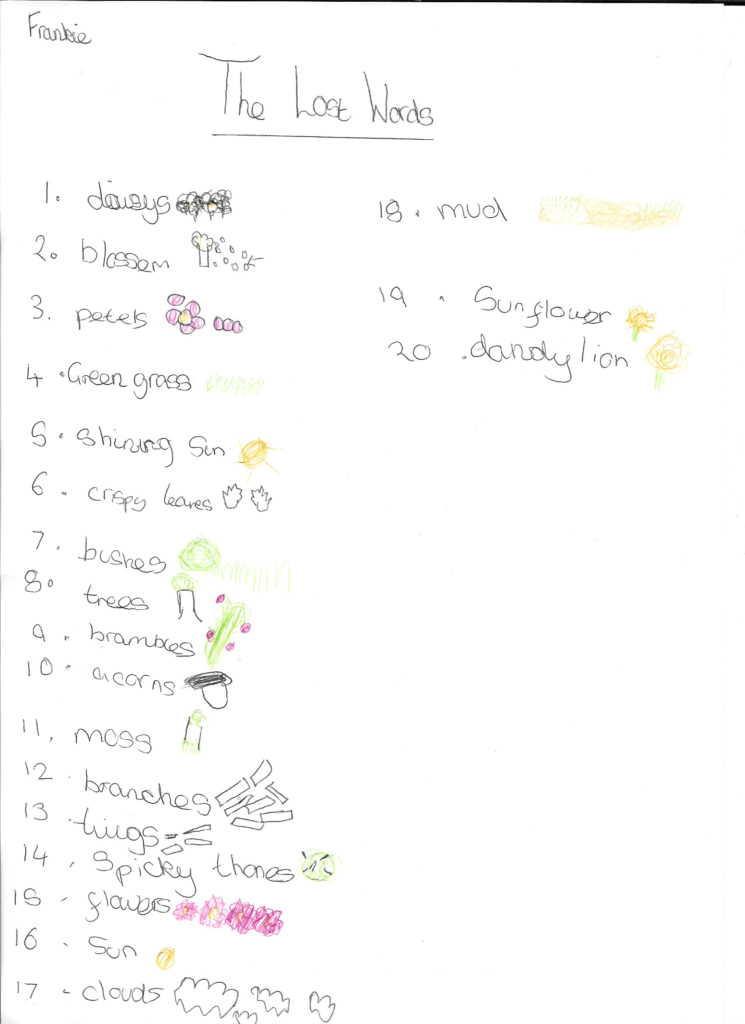 Frankie
The Lost Words
1. daisys
2. blossem
3. petels
4. Green grass
5. Shining Sun
6. crispy leaves
7. bushes
8. trees
9. brambles
10. acorns
11. moss
12. branches
13. twigs
14. Spicky thones
15. flowers
16. Sun
17. clouds
18. mud
19. Sunflower
20. dandylion